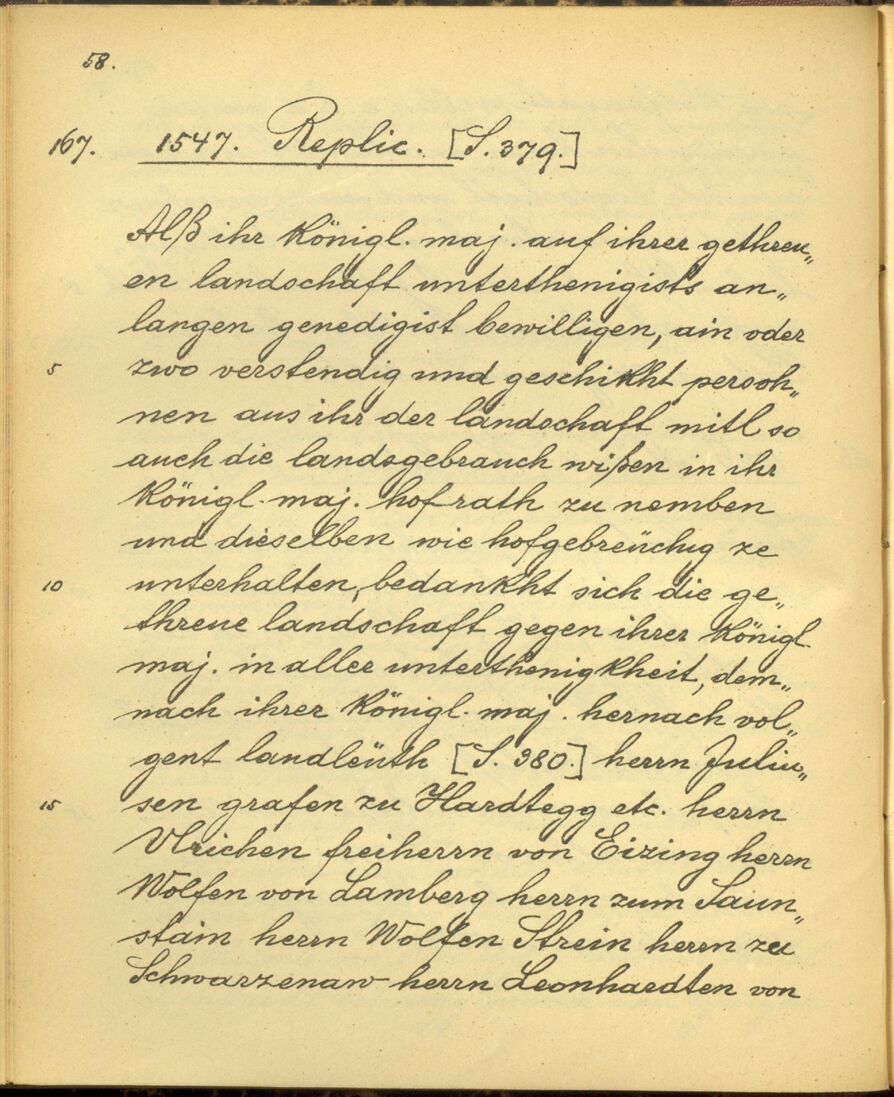 58.
167. 1547. Replic. [S. 379.]
Alß ihr Königl. maj. auf ihrer gethreu„
en landschaft unterthenigists an„
langen genedigist bewilligen, ain oder
5 zwo verstendig und geschikht persoh„
nen aus ihr der landschaft mitl so
auch die landsgebrauch wißen in ihr
Königl. maj. hofrath zu nemben
und dieselben wie hofgebreüchig ze
10 unterhalten, bedankht sich die ge„
threue landschaft gegen ihrer Königl.
maj. in aller unterthenigkheit, dem„
nach ihrer Königl. maj. hernach vol„
gent landleüth [S. 380.] herrn Juliu„
15 sen grafen zu Hardtegg etc. herrn
Ulrichen freiherrn von Eizing herrn
Wolfen von Lamberg herrn zum Saun„
stain herrn Wolfen Strein herrn zu
Schwarzenaw herrn Leonhardten von